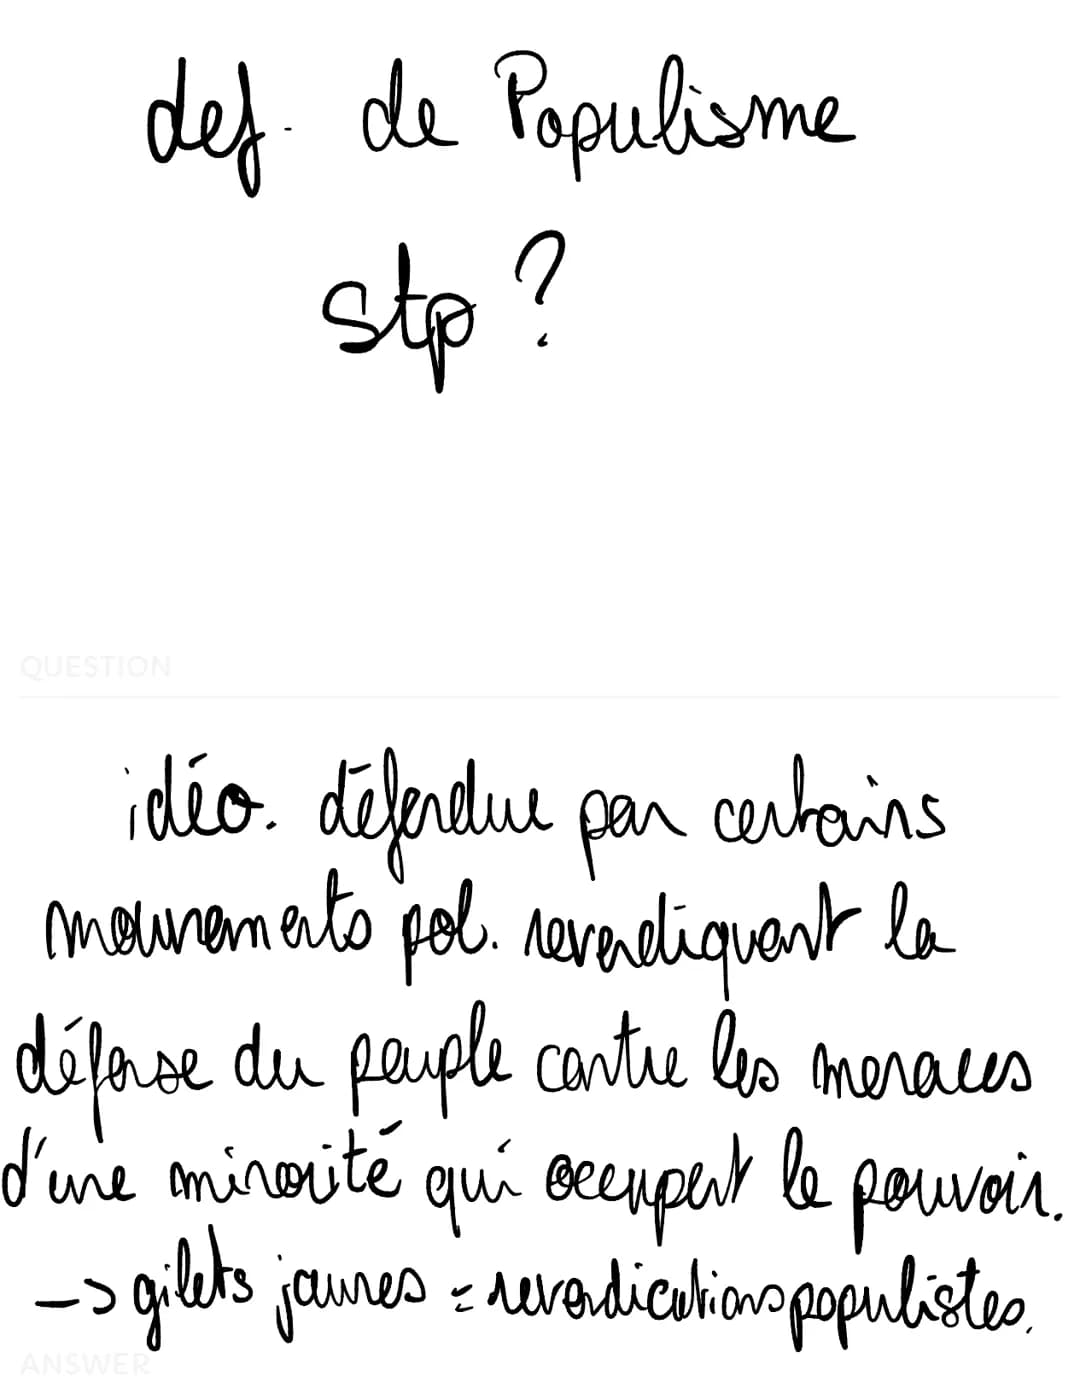 def. de Populisme
stp ?
QUESTION
idéo. défendue par certains
mouvements pol. revendiquant la
défense du peuple contre les menaces
d'une minorité qui occupent le pouvoir.
-> gilets jaunes = revendications populistes.
ANSWER